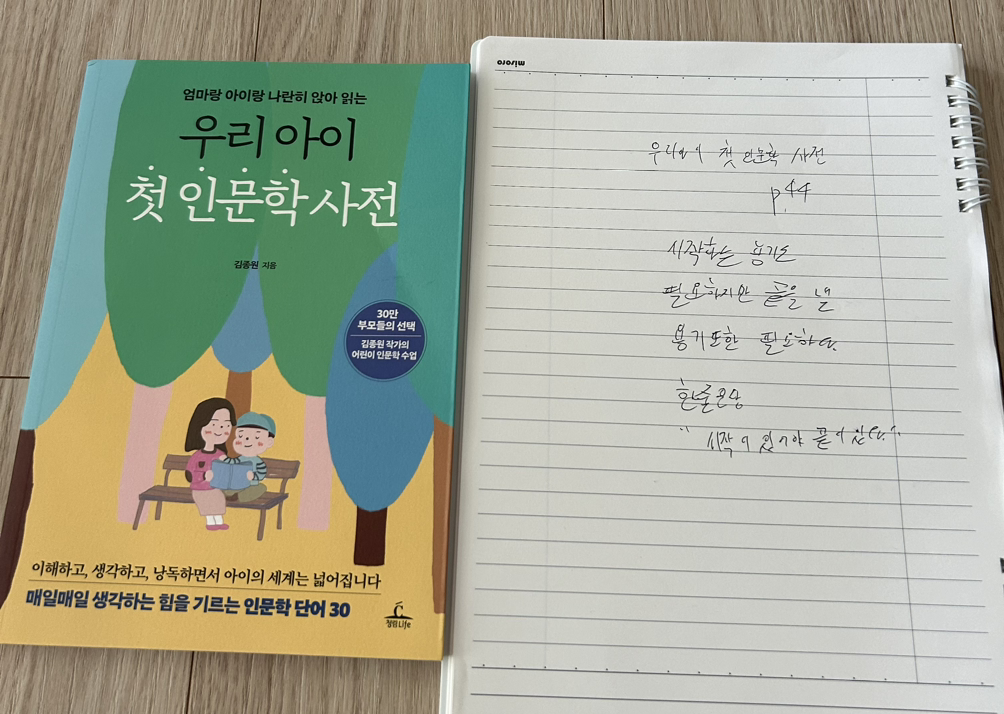 엄마랑 아이랑 나란히 앉아 읽는
우리 아이
첫 인문학 사전
김종원 지음
30만
부모들의 선택
김종원 작가의
어린이 인문학 수업
이해하고, 생각하고, 낭독하면서 아이의 세계는 넓어집니다
매일매일 생각하는 힘을 기르는 인문학 단어 30
청림Life
miroro
우리아이 첫 인문학 사전
p.44
시작하는 용기도
필요하지만 끝을 낼
용기 또한 필요하다.
한줄로망
"시작이 있어야 끝이 있다."